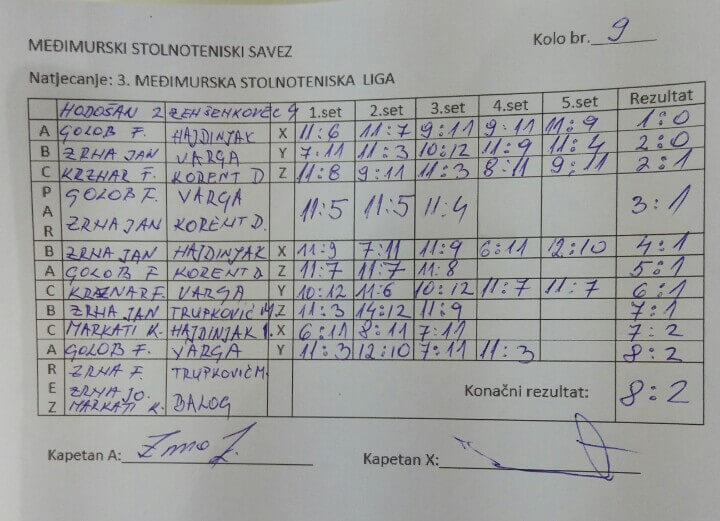 MEĐIMURSKI STOLNOTENISKI SAVEZ
Kolo br. 9
Natjecanje: 3. MEĐIMURSKA STOLNOTENISKA LIGA
HODOŠAN 2 1.set 2.set 3.set 4.set 5.set Rezultat
A GOLOB F. HAJDINJAK X 11:6 11:7 9:11 9:11 11:9 1:0
B ZRNA JAN VARGA Y 7:11 11:3 10:12 11:9 11:4 2:0
C KRZNAR F. KORENT D Z 11:8 9:11 11:3 8:11 9:11 2:1
PAR GOLOB F. VARGA
ZRNA JAN KORENT D. 11:5 11:5 11:4 3:1
B ZRNA JAN HAJDINJAK X 11:9 7:11 11:9 6:11 12:10 4:1
A GOLOB F KORENT D Z 11:7 11:7 11:8 5:1
C KRZNAR F. VARGA Y 10:12 11:6 10:12 11:7 11:7 6:1
B ZRNA JAN TRUPKOVIĆ M. Z 11:3 14:12 11:9 7:1
C MARKATI K. HAJDINJAK I. X 6:11 8:11 7:11 7:2
A GOLOB F. VARGA Y 11:3 12:10 7:11 11:3 8:2
REZ ZRNA F. TRUPKOVIĆ M.
ZRNA JO.
MARKATI K. BALOG
Konačni rezultat: 8:2
Kapetan A:
Kapetan X: